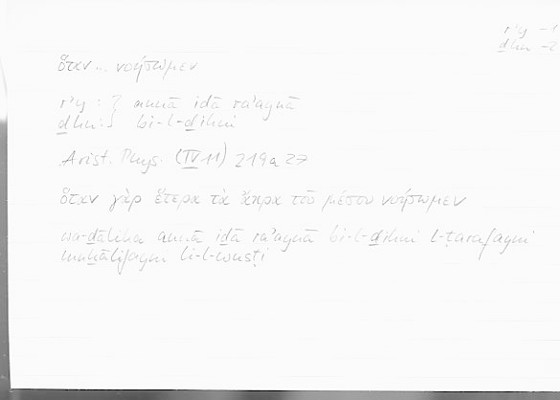 rʾy –1
ḏhn –2
ὅταν... νοήσωμεν
rʾy : } annā iḏā raʾaynā
ḏhn: } bi-l-ḏihni
Arist. Phys. (IV 11) 219a 27
ὅταν γὰρ ἕτερα τὰ ἄκρα τοῦ μέσου νοήσωμεν
wa-ḏālika annā iḏā raʾaynā bi-l-ḏihni l-ṭarafayni
muḫālifayni li-l-wusṭi